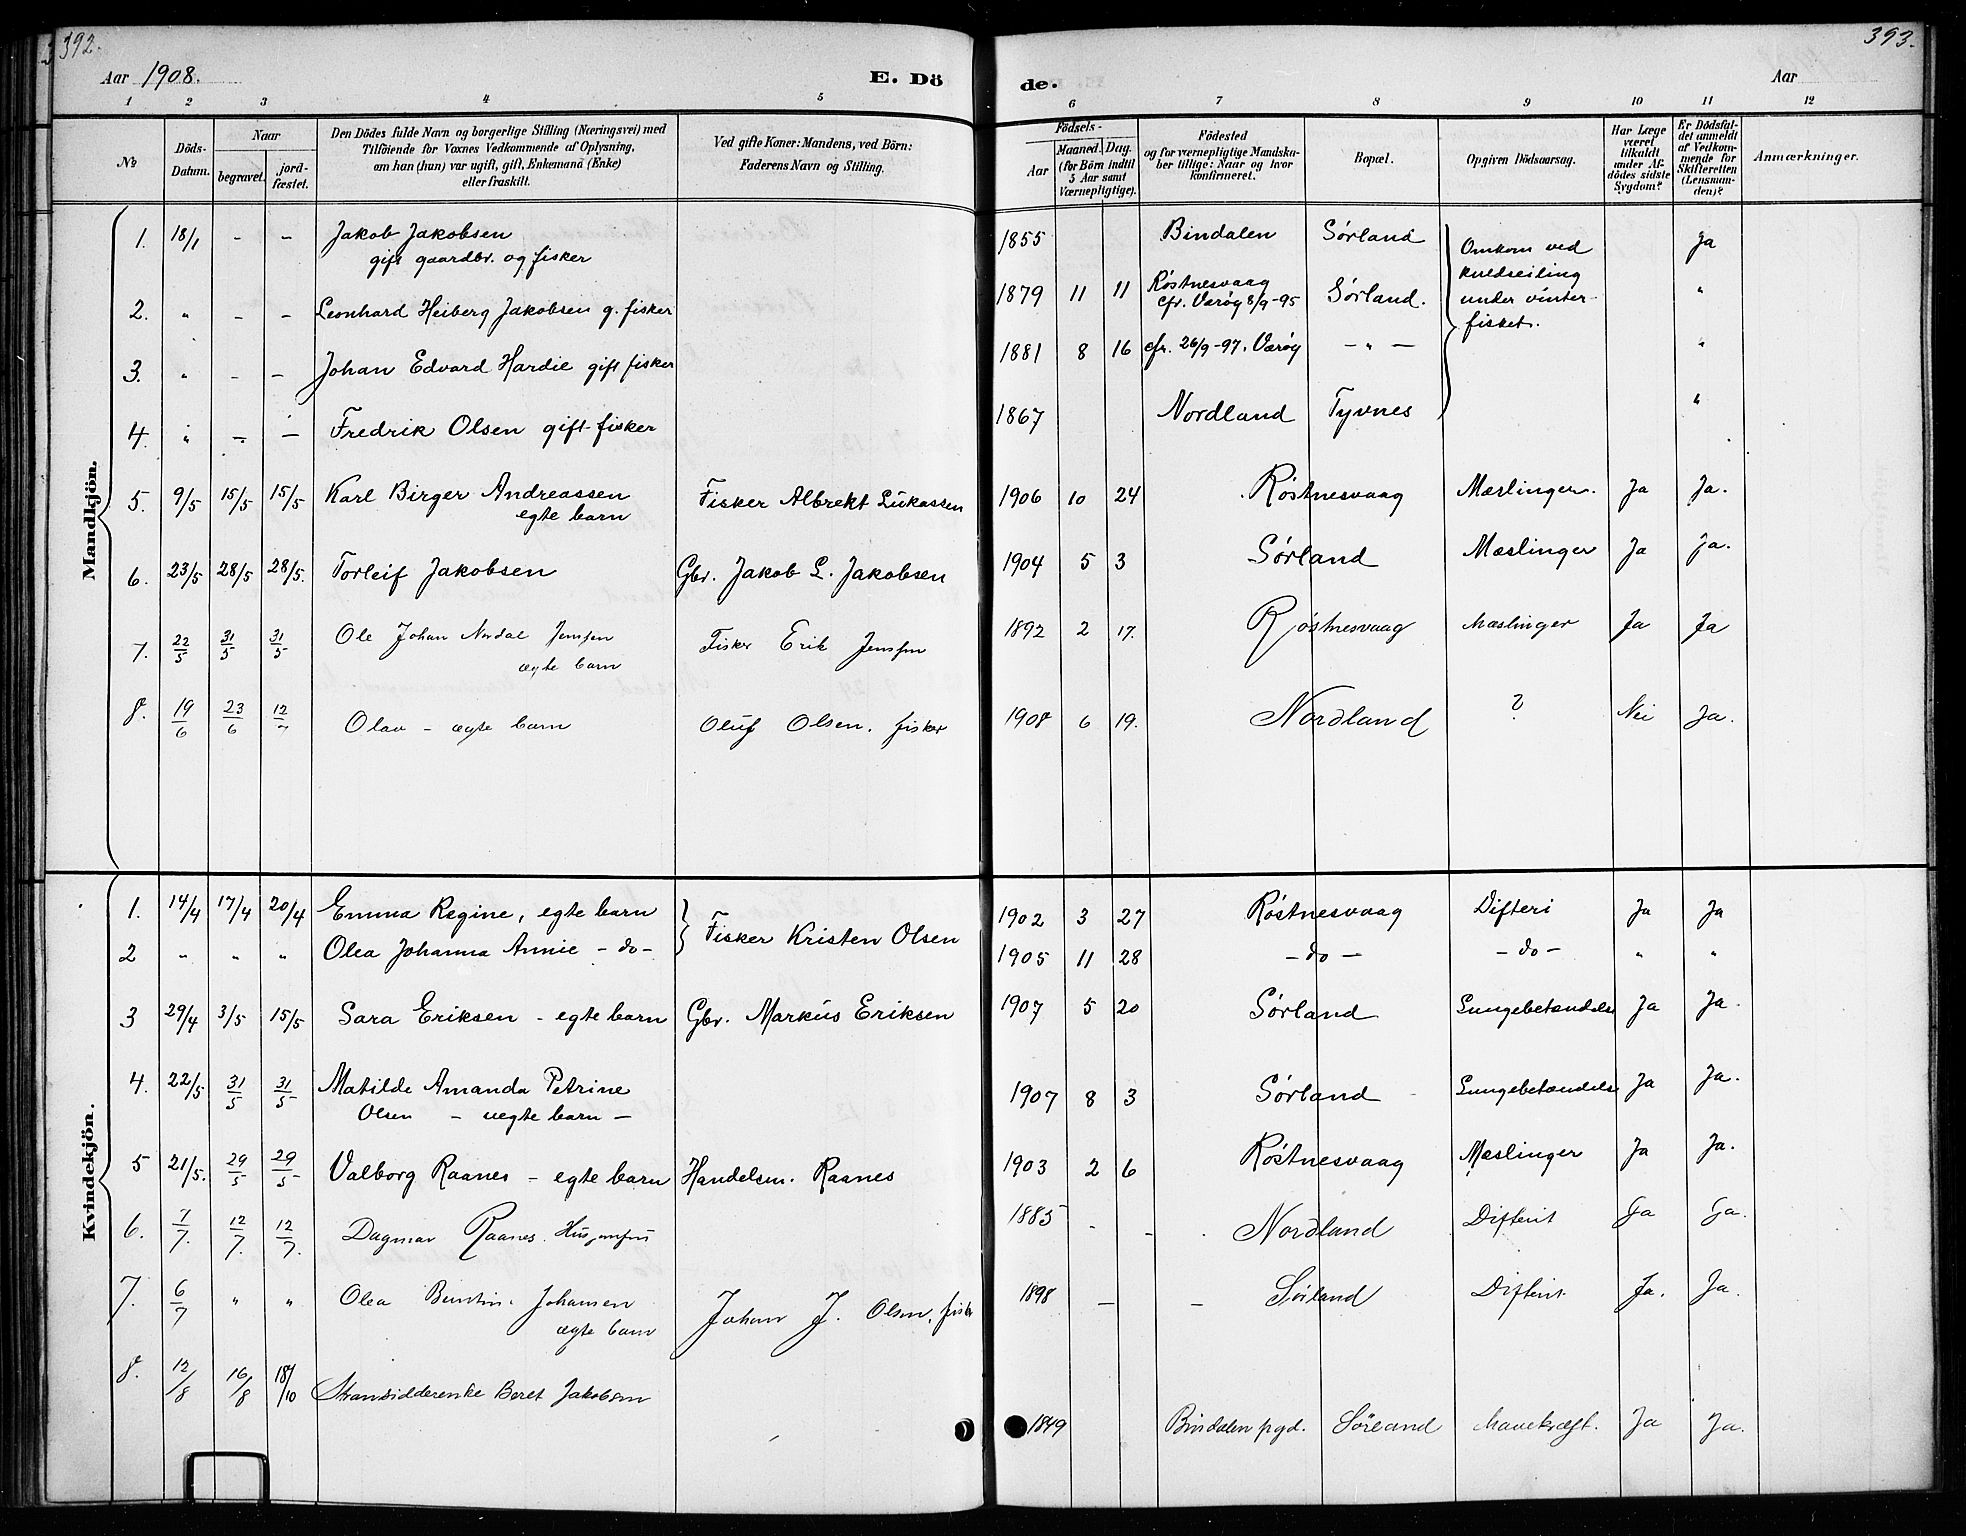 392.
393.
Aar 1908.
E. Dö
de.
Aar
1 2 3 4 5 6 7 8 9 10 11 12
No
Döds-
Datum.
Naar
begravet.
jord-
fæstet.
Den Dödes fulde Navn og borgerlige Stilling (Næringsvei) med
Tilföiende for Voxnes Vedkommende af Oplysning,
om han (hun) var ugift, gift, Enkemand (Enke)
eller fraskilt.
Ved gifte Koner: Mandens, ved Börn:
Faderens Navn og Stilling.
Födsels-
Aar
Maaned. Dag.
(for Börn indtil
5 Aar samt
Værnepligtige).
Födested
og for værnepligtige Mandska-
ber tillige: Naar og hvor
konfirmeret.
Bopæl.
Opgiven Dödsaarsag.
Har Læge
været
tilkaldt
under Af-
dödes sidste
Sygdom?
Er Dödsfal-
det anmeldt
af Vedkom-
mende for
Skifteretten
(Lensman-
den)?
Anmærkninger.
Mandkjön.
1. 18/1 - - Jakob Jakobsen 1855 Bindalen Sørland Omkom ved Ja
gift gaardbr. og fisker kuldseiling
2. " - - Leonhard Heiberg Jakobsen g. fisker 1879 11 11 Røstnesvaag Sørland. under vinter- "
cfr. Værøy 8/9-95 fisket.
3. " - - Johan Edvard Hardie gift fisker 1881 8 16 cfr. 26/9-97. Værøy - " - "
4. " - - Fredrik Olsen gift fisker 1867 Nordland Tyvnes "
5. 9/5 15/5 15/5 Karl Birger Andreassen Fisker Albrekt Lukassen 1906 10 24 Røstnesvaag Mæslinger. Ja Ja.
egte barn
6. 23/5 28/5 28/5. Torleif Jakobsen Gbr. Jakob L. Jakobsen 1904 5 3 Sørland Mæslinger Ja Ja.
7. 22/5 31/5 31/5 Ole Johan Nordal Jenssen Fisker Erik Jenssen 1892 2 17. Røstnesvaag Mæslinger Ja Ja
ægte barn
8. 19/6 23/6 12/7 Olav - ægte barn Oluf Olsen, fisker 1908 6 19. Nordland ? Nei Ja.
Kvindekjön.
1. 14/4 17/4 20/4 Emma Regine, egte barn Fisker Kristen Olsen 1902 3 27 Røstnesvaag Difteri Ja Ja
2 " " " Olea Johanna Annie - do - 1905 11 28 - do - - do - " "
3 29/4 3/5 15/5 Sara Eriksen - egte barn Gbr. Markus Eriksen 1907 5 20 Sørland Lungebetændelse Ja Ja.
4. 22/5 31/5 31/5 Matilde Amanda Petrine 1907 8 3 Sørland Lungebetændelse Ja Ja.
Olsen - uegte barn -
5 21/5. 29/5 29/5 Valborg Raanes - egte barn Handelsm. Raanes 1903 2 6 Røstnesvaag Mæslinger Ja Ja.
6. 7/7. 12/7. 12/7. Dagmar Raanes. 1885 - - Nordland Difterit Ja Ja.
7. 6/7 " " Olea Johansen Johan J. Olsen, fisk 1898 - - Sørland Difterit Ja. Ja.
ægte barn
8. 12/8 16/8 18/10 Strandsidderenke Beret Jakobsen 1849 Bindalen pgd. Sörland Mavekræft. Ja Ja.